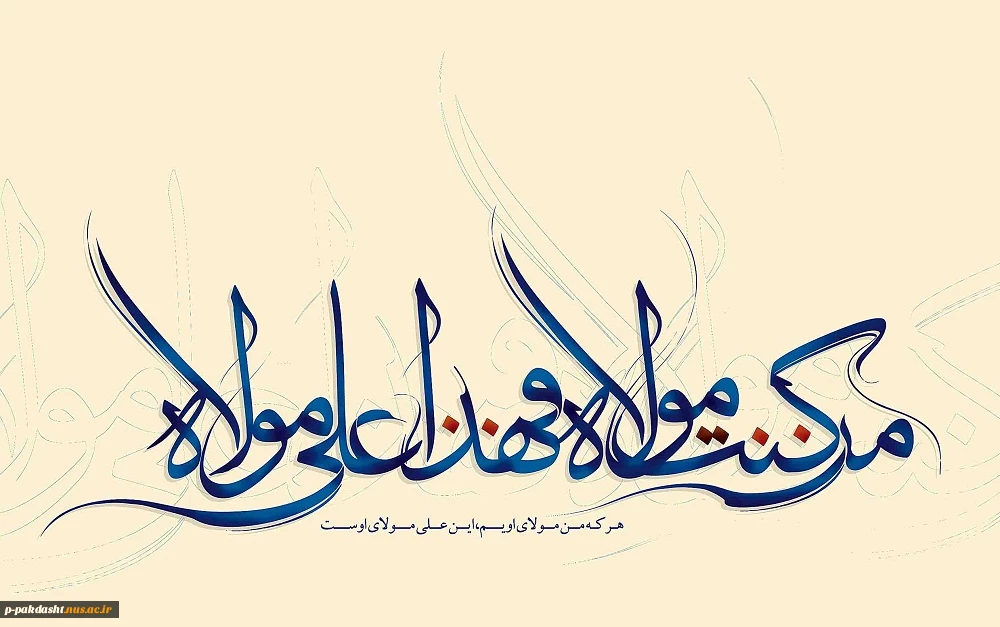 من كنت مولاه فهذا علی مولاه
هر که من مولای اویم، این علی مولای اوست
p-pakdasht.nus.ac.ir